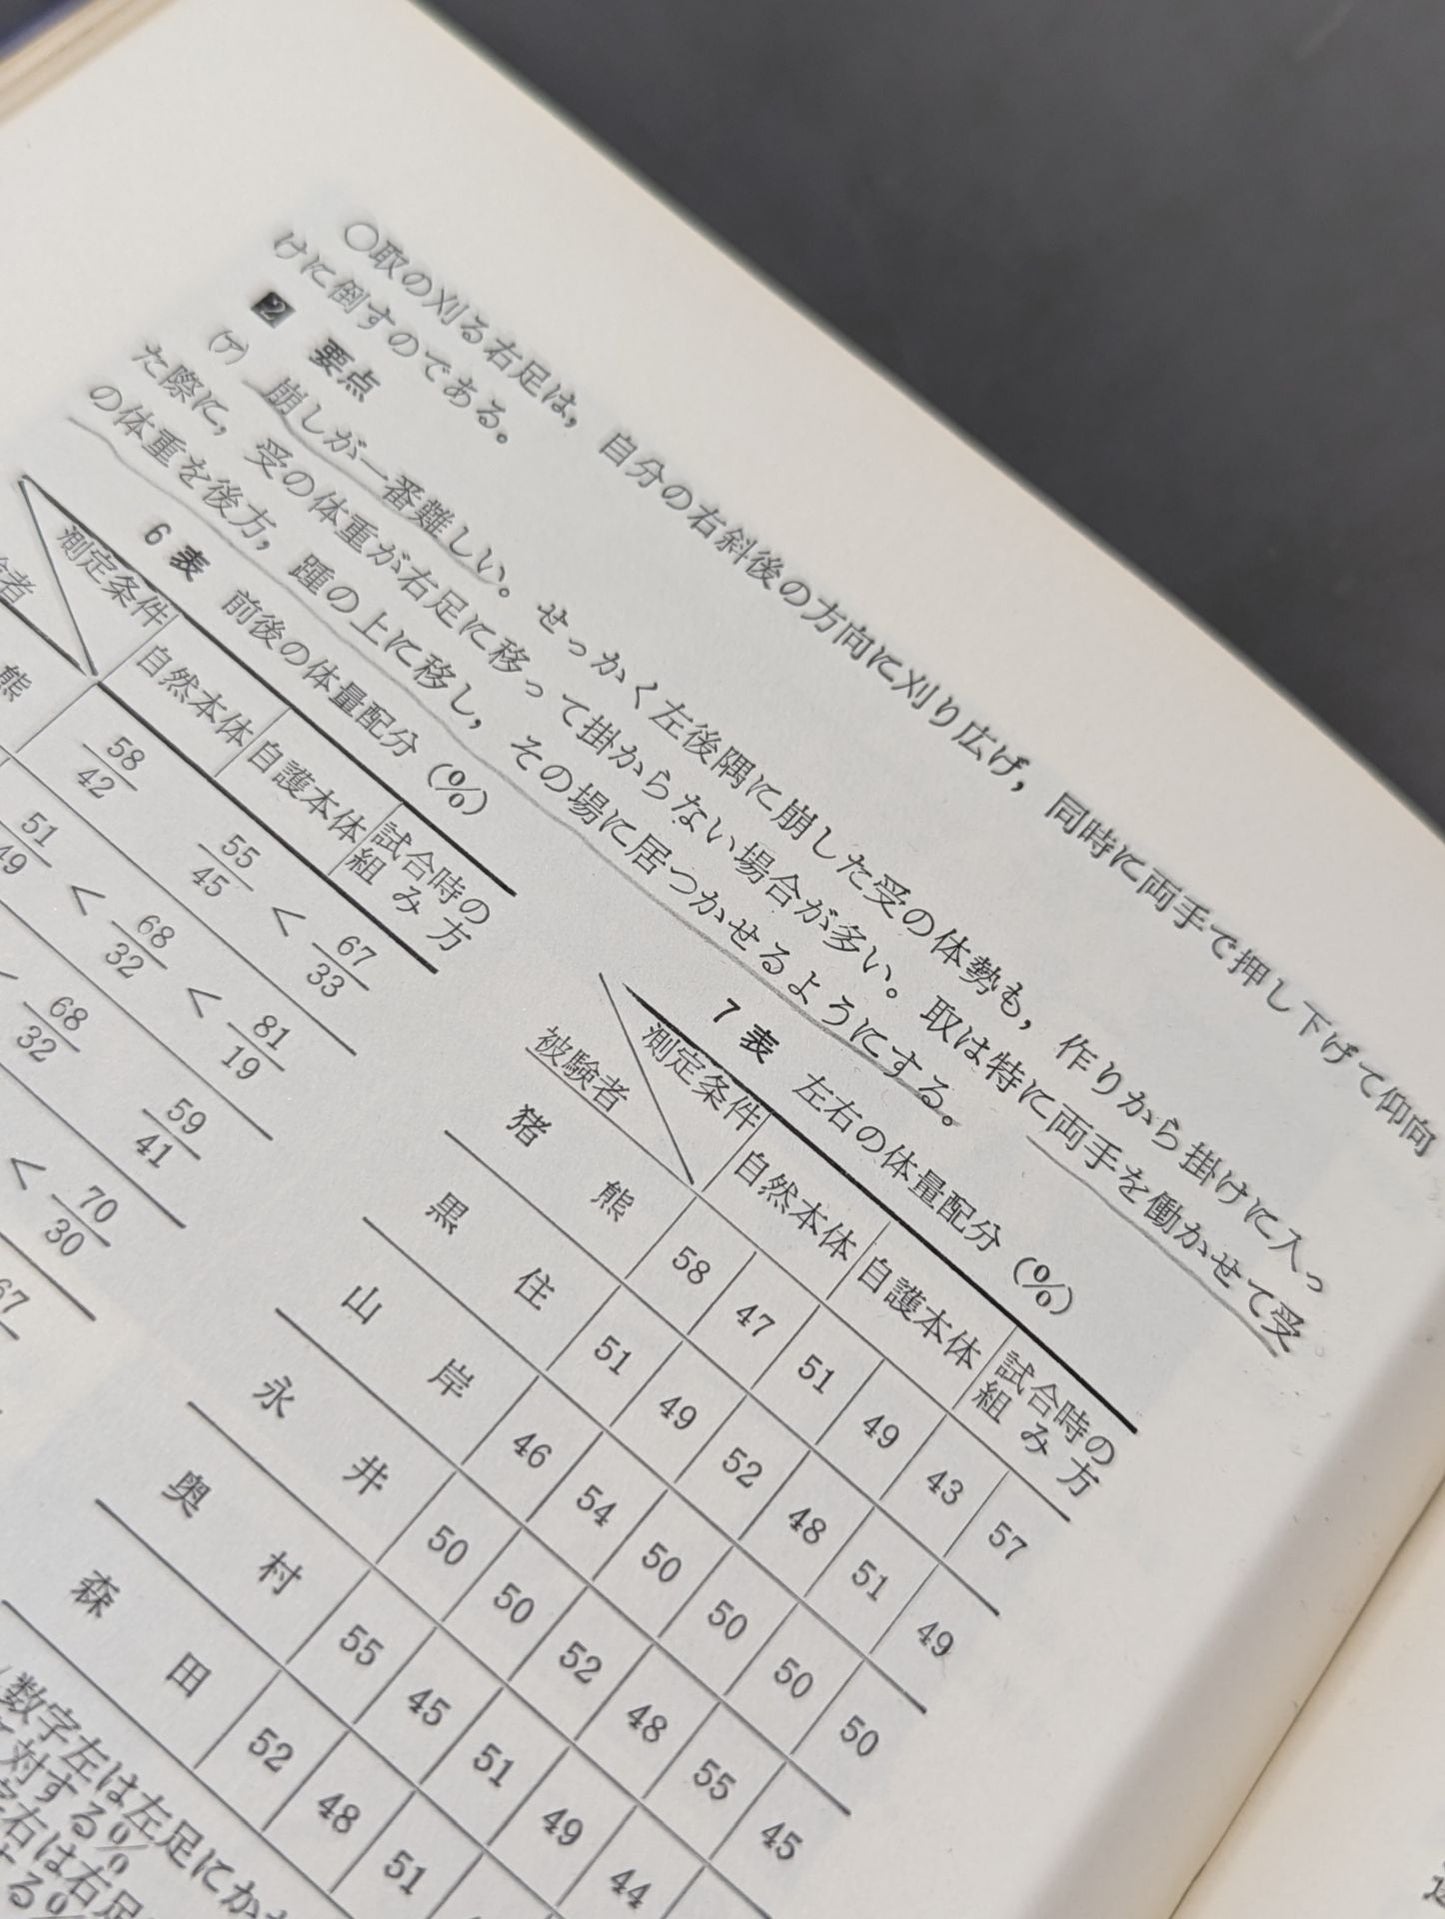 ○取の刈る右足は，自分の右斜後の方向に刈り広げ，同時に両手で押し下げて仰向
けに倒すのである。
2 要点
(ア) 崩しが一番難しい。せっかく左後隅に崩した受の体勢も，作りから掛けに入っ
た際に，受の体重が右足に移って掛からない場合が多い。取は特に両手を働かせて受
の体重を後方，踵の上に移し，その場に居つかせるようにする。
6 表 前後の体量配分 (%)
測定条件 自然本体 自護本体 試合時の組み方
者
熊 58/42 55/45 < 67/33
51/49 < 68/32 < 81/19
< 68/32 59/41
< 70/30
67
7 表 左右の体量配分 (%)
測定条件 自然本体 自護本体 試合時の組み方
被験者
猪熊 58 47 51 49 43 57
黒住 51 49 52 48 51 49
山岸 46 54 50 50 50 50
永井 50 50 52 48 55 45
奥村 55 45 51 49 44
森田 52 48 51
数字左は左足にか
対する%
右は右足
する%